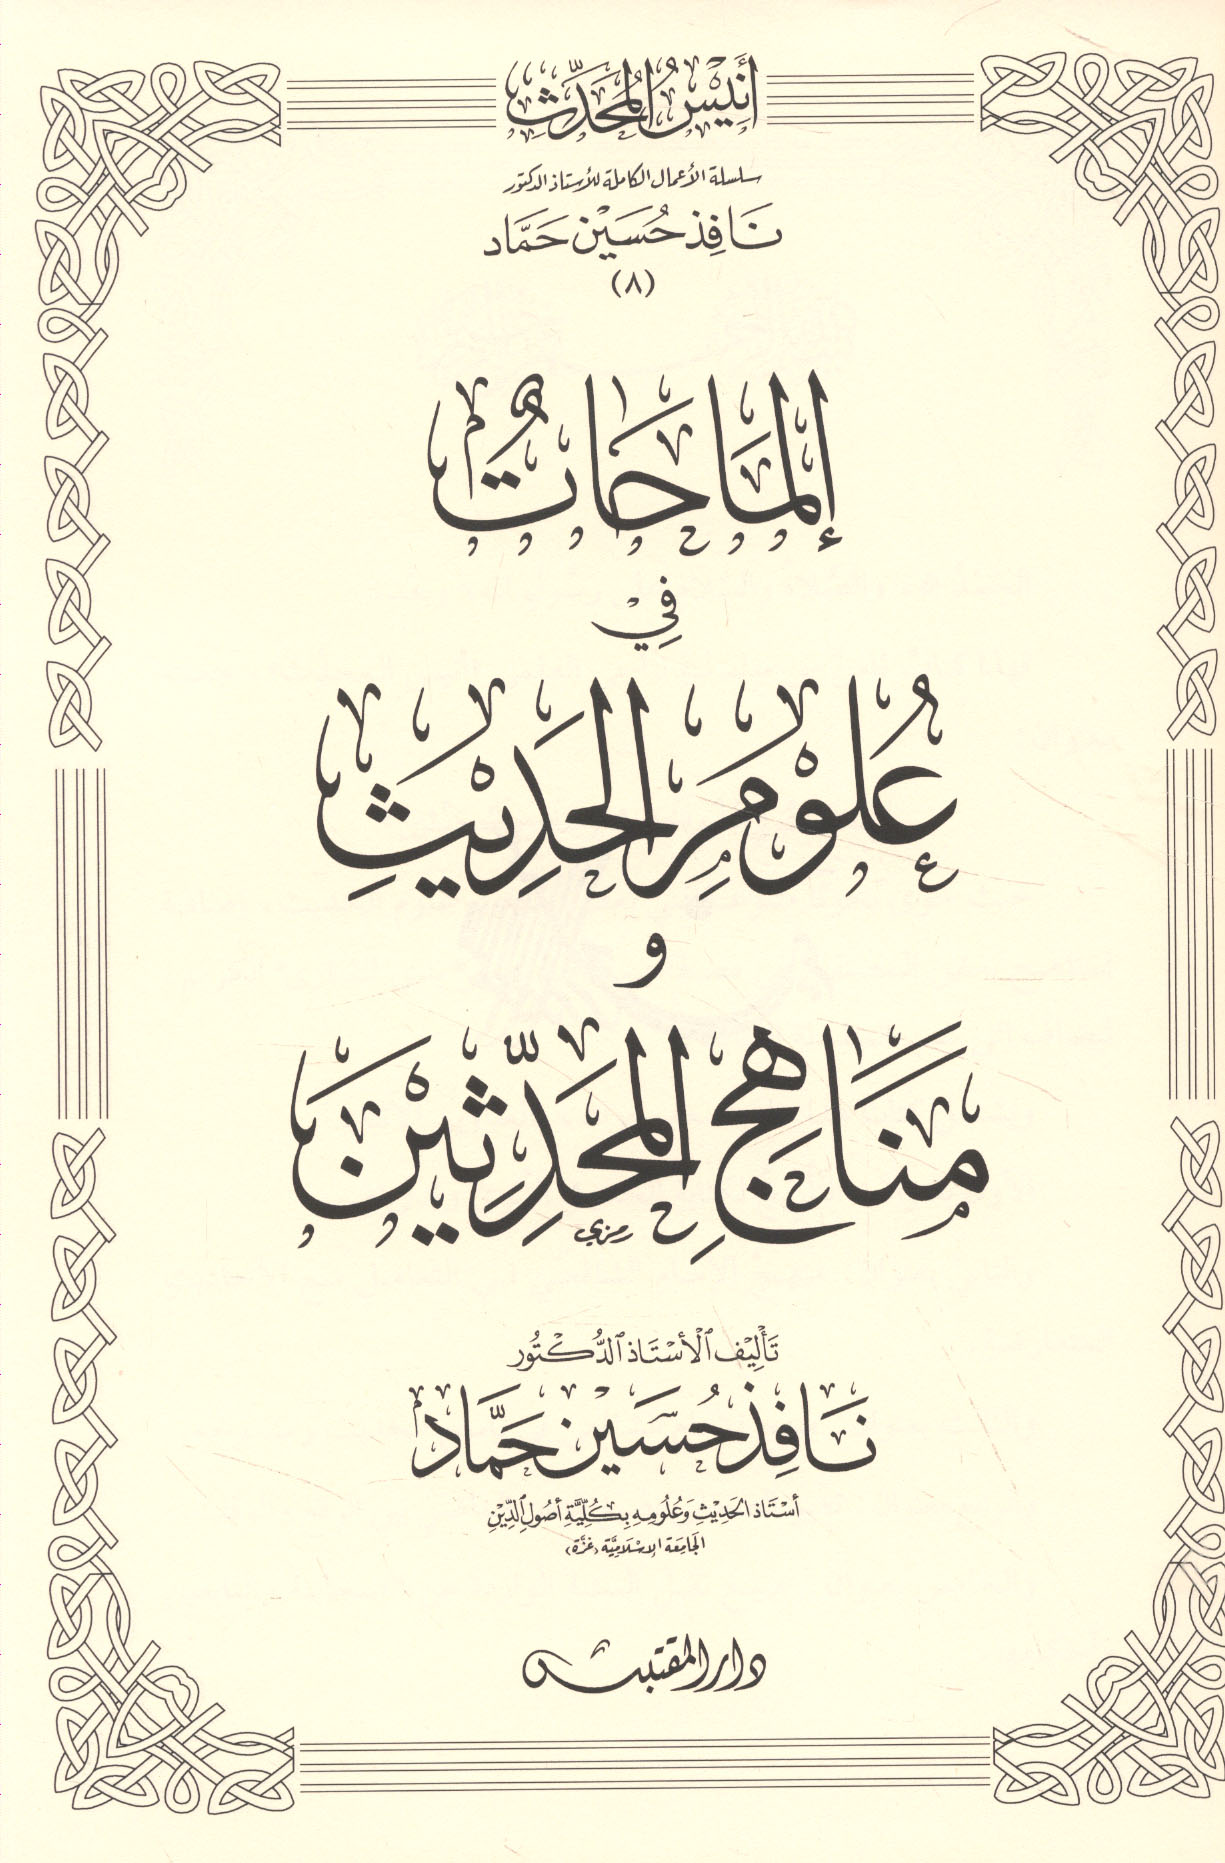 أَنِيْسُ المُحَدِّثِ
سلسلة الأعمال الكاملة للأستاذ الدكتور
نَافِذ حُسَيْن حَمَّاد
(٨)
إلمَاحَاتٌ
فِيْ
عُلُوْمِ الحَدِيْثِ
و
مَنَاهِجِ المُحَدِّثِيْنَ
رمزي
تَأْلِيْف ٱلْأُسْتَاذ ٱلدُّكْتُور
نَافِذ حُسَيْن حَمَّاد
أُسْتَاذ الحَدِيْثِ وَعُلُومِهِ بِكُلِّيَّةِ أُصُولِ ٱلدِّيْنِ
الجَامِعَة الإِسْلَامِيَّة (غزَّة)
دار المقتبس